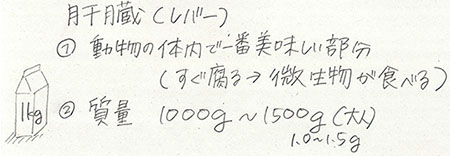 肝臓(レバー)
① 動物の体内で一番美味しい部分
(すぐ腐る→微生物が食べる)
1kg
② 質量 1000g~1500g(大人)
1.0~1.5g